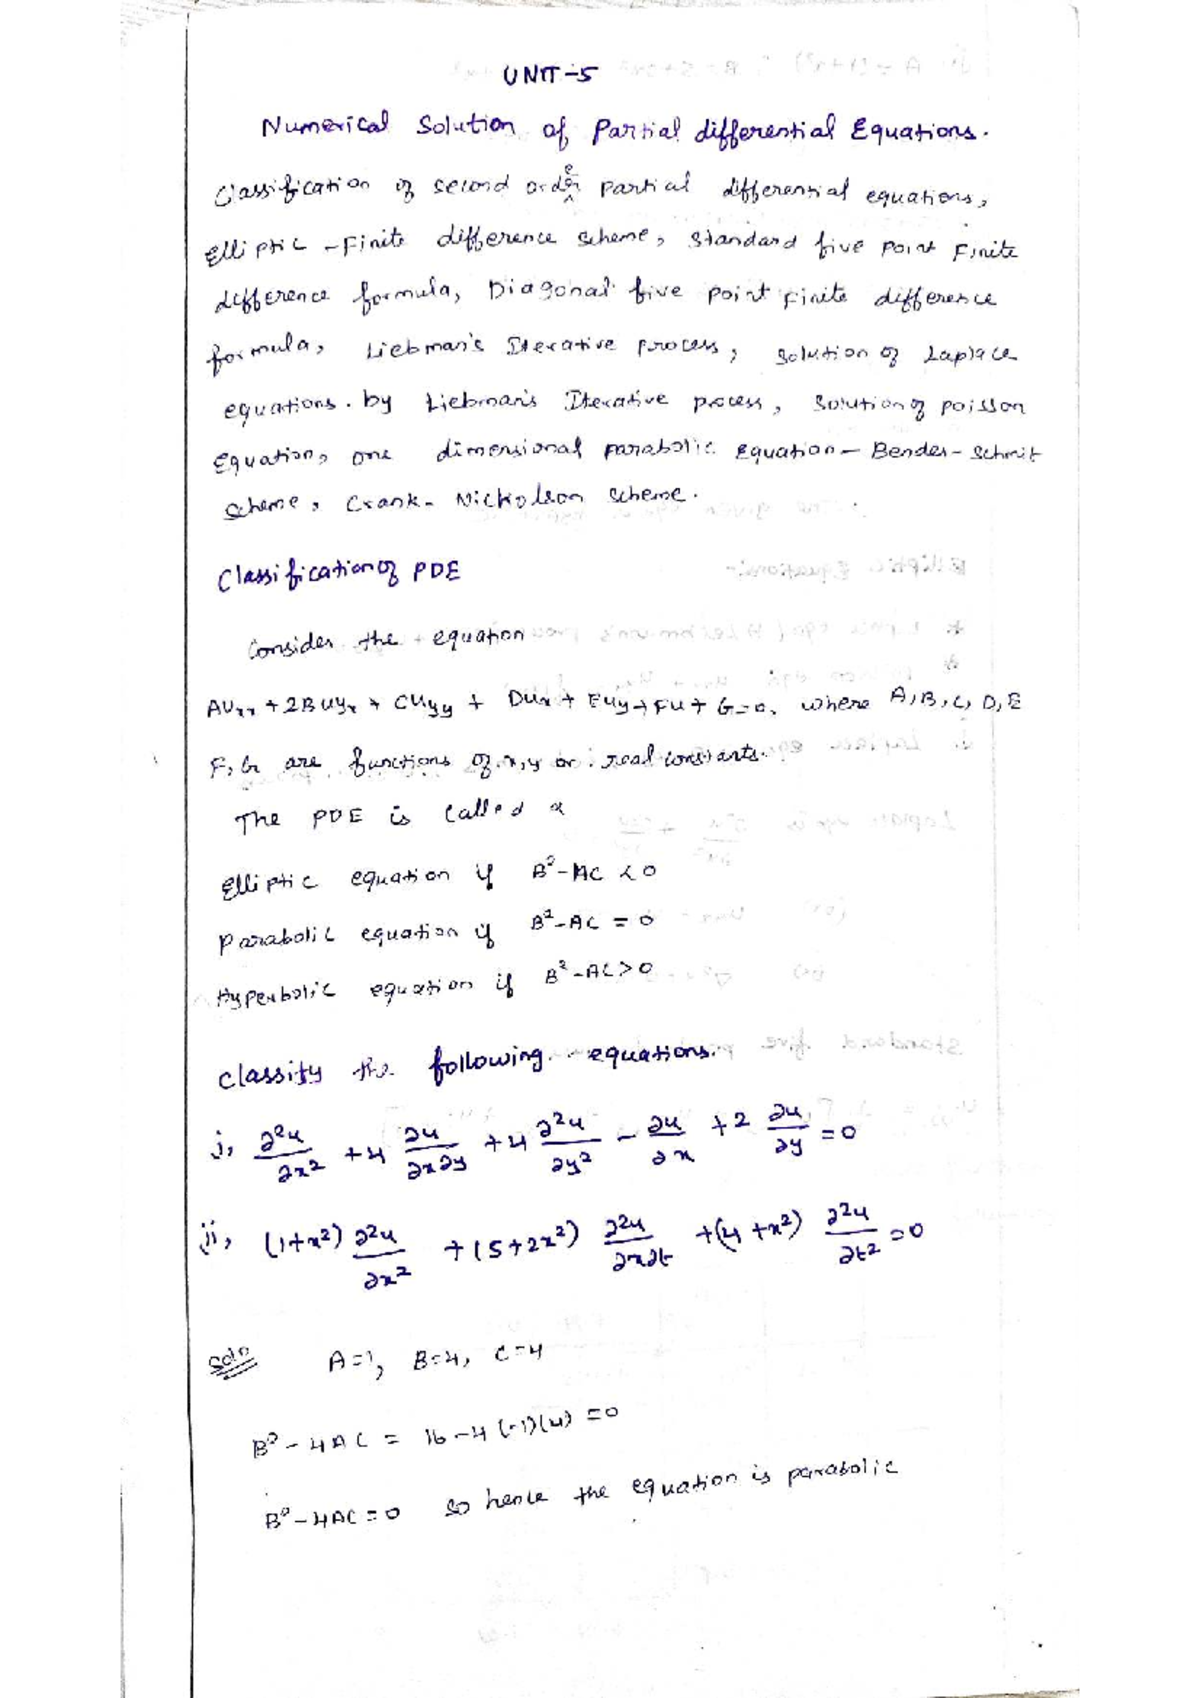 UNIT-5
Numerical Solution of Partial differential Equations.
Classification of second order partial differential equations,
Elliptic - Finite difference scheme, standard five point Finite
difference formula, Diagonal five point finite difference
formula, Liebman's Iterative process, solution of Laplace
equations. by Liebman's Iterative process, solution of poisson
Equation, one dimensional parabolic Equation - Bender-Schmit
scheme, Crank-Nickolson scheme.
Classification of PDE
Consider the equation
AUxx + 2Buyx + Cuyy + Dux + Euy + Fu + G = 0, where A, B, C, D, E
F, G are functions of x, y or real constants.
The PDE is called a
Elliptic equation if B² - AC < 0
Parabolic equation if B² - AC = 0
Hyperbolic equation if B² - AC > 0
classify the following equations.
i, ∂²u/∂x² + 4 ∂u/∂x∂y + 4 ∂²u/∂y² - ∂u/∂x + 2 ∂u/∂y = 0
ii, (1+x²) ∂²u/∂x² + (5+2x²) ∂²u/∂x∂t + (4+x²) ∂²u/∂t² = 0
Soln A=1, B=4, C=4
B² - 4AC = 16 - 4(-1)(4) = 0
B² - 4AC = 0 so hence the equation is parabolic